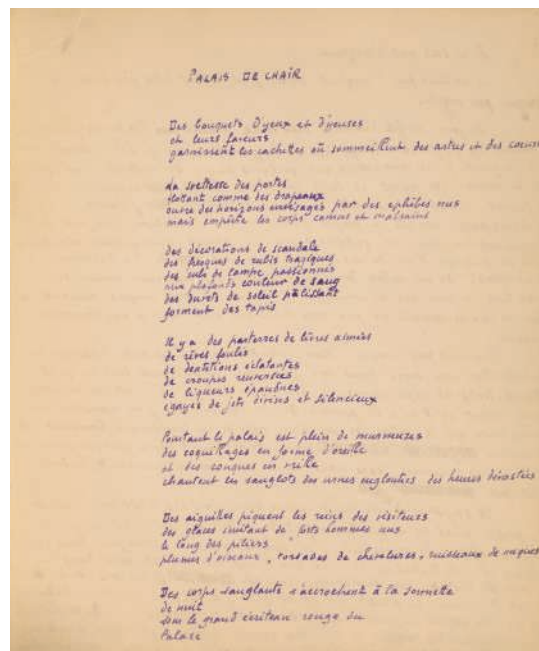 PALAIS DE CHAIR
Des bouquets d'yeux et d'yeuses
et leurs faveurs
garnissent les cachettes où sommeillent des astres et des coeurs
La sveltesse des portes
flotant comme des drapeaux
ouvre des horizons envisagés par des ephèbes nus
mais empêche les corps camus et malsains
des décorations de scandale
des fresques de rubis tragiques
des culs de lampe passionnés
aux plafonds couleur de sang
des duvets de soleil pâlissant
forment des tapis
Il y a des parterres de lèvres aimées
de rêves foulés
de dentitions éclatantes
de croupes renversées
de liqueurs épandues
égayés de jets divins et silencieux
Pourtant le palais est plein de murmures
des coquillages en forme d'oreille
et des conques en vrille
chantent les sanglots des urnes englouties des heures dévastées
Des aiguilles piquent les reins des visiteurs
des glaces imitant de forts hommes nus
le long des piliers
plumes d'oiseaux, torsades de chevelures, ruisseaux de nuques
Des corps sanglants s'accrochent à la sonnette
de nuit
sous le grand écriteau rouge du
Palace